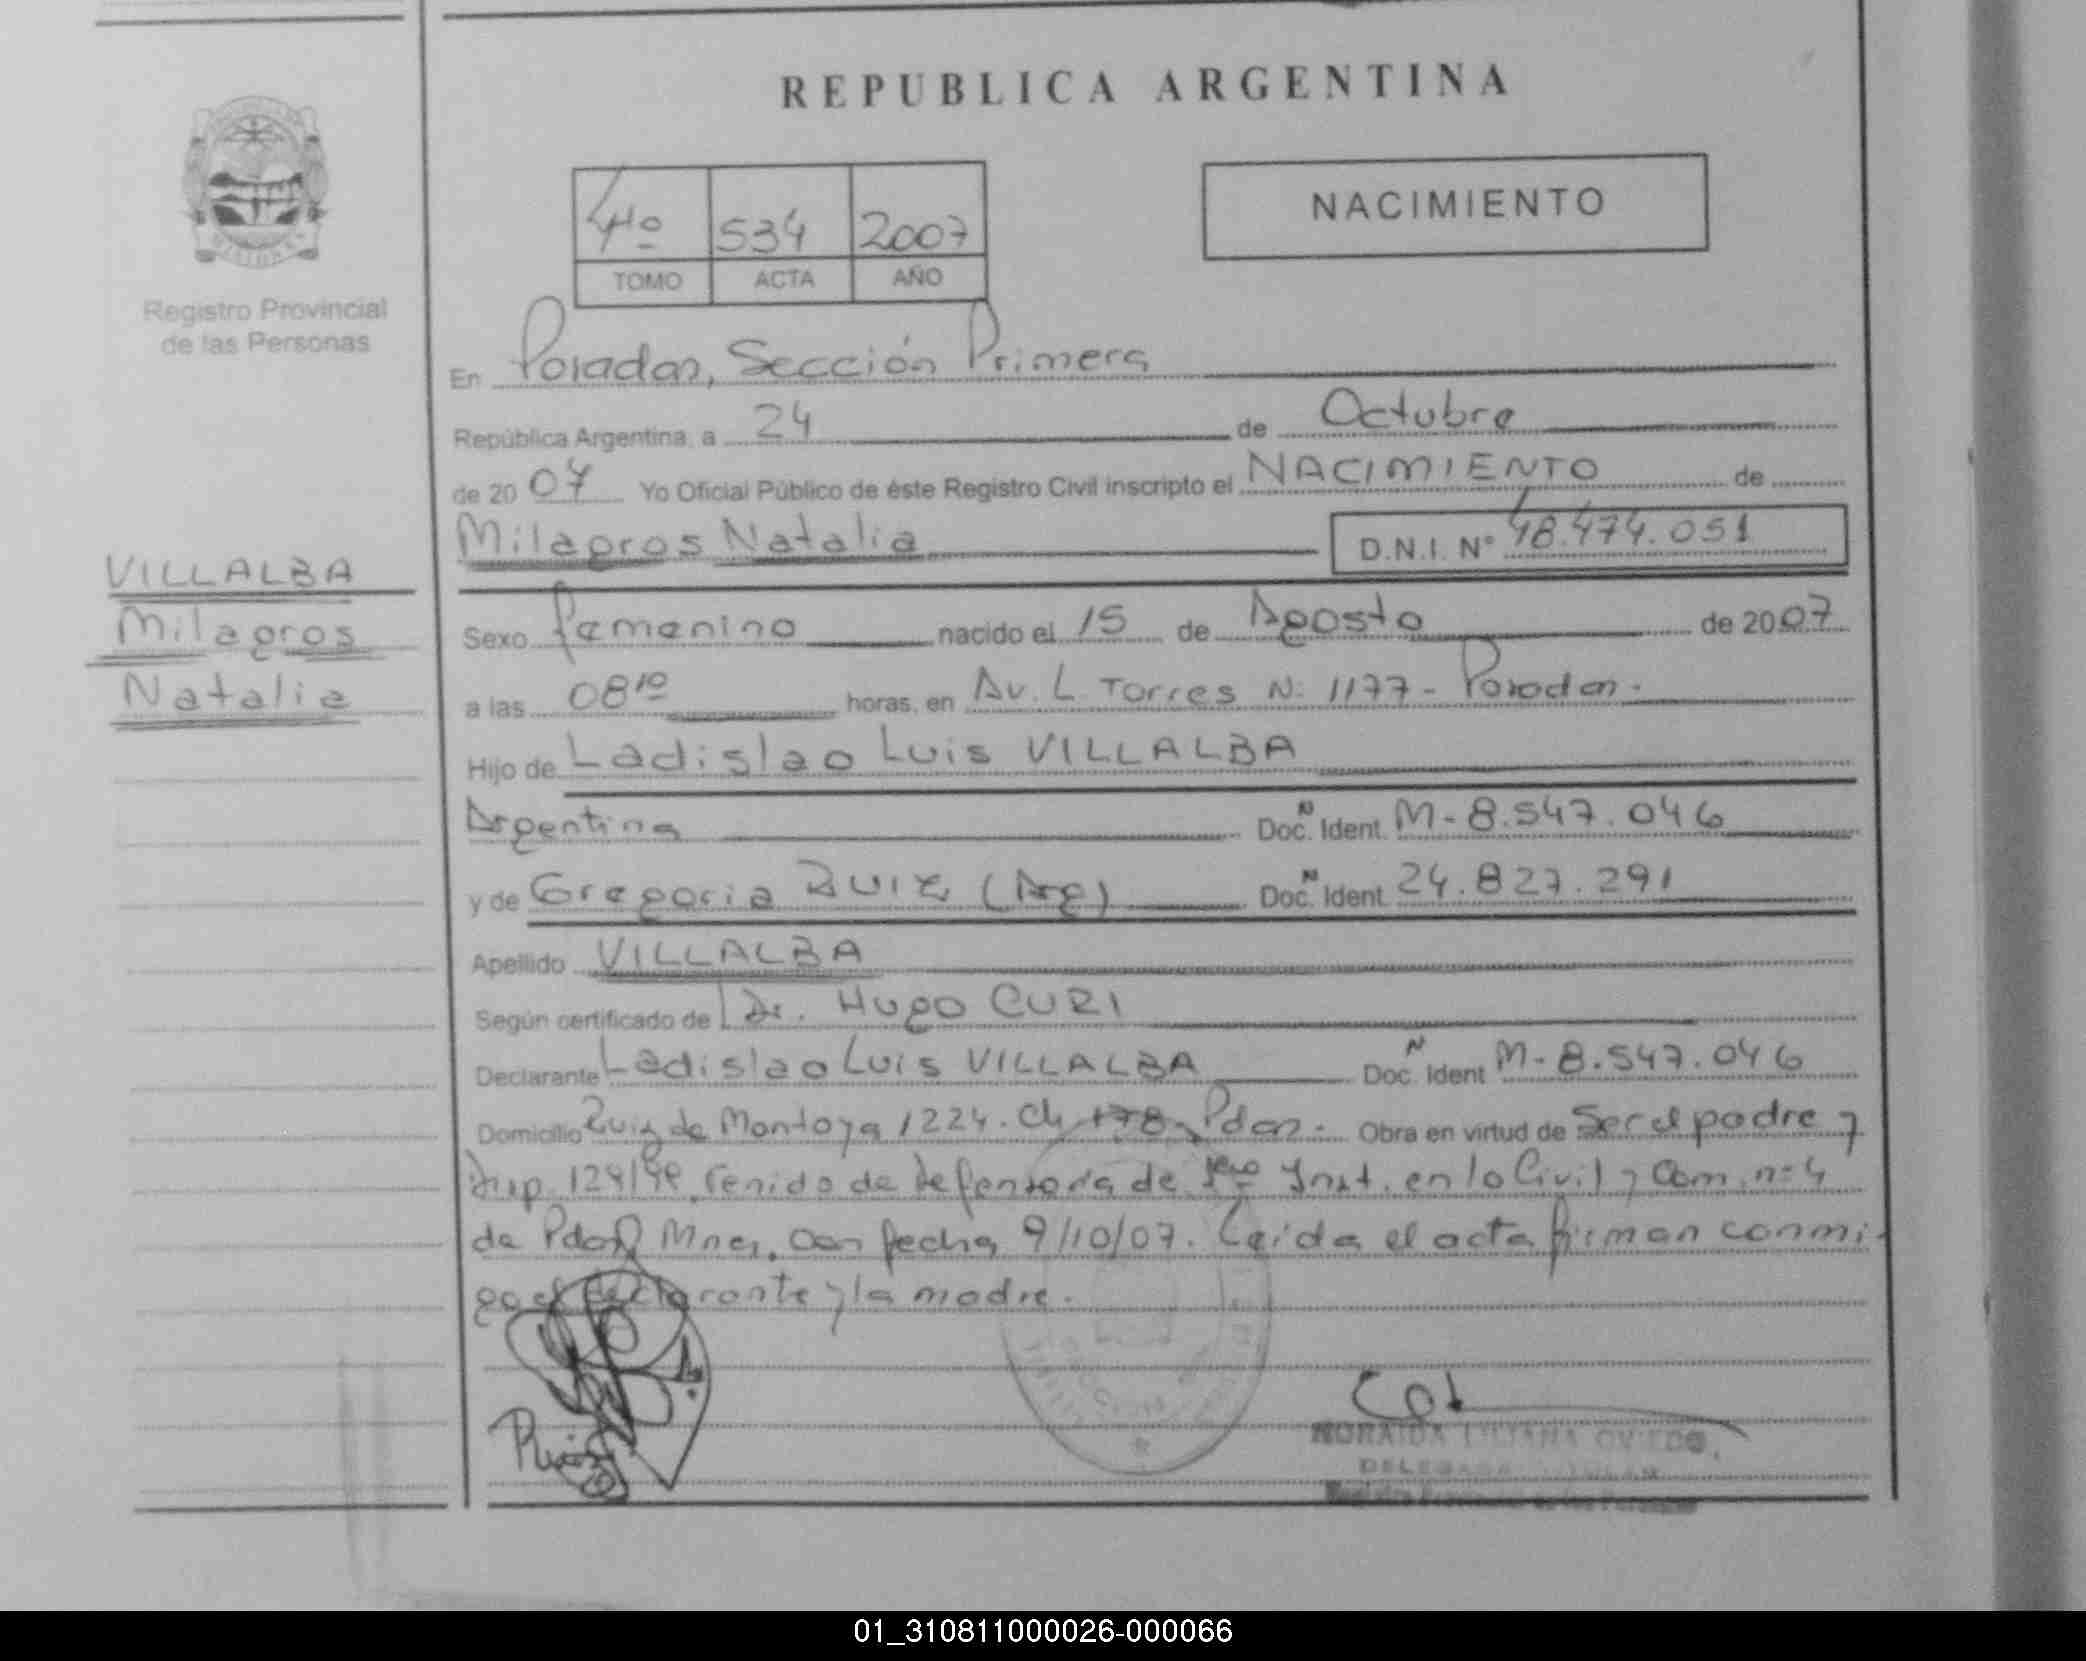 REPUBLICA ARGENTINA
NACIMIENTO
4º 534 2007
TOMO ACTA AÑO
Registro Provincial
de las Personas
En Posadas, Sección Primera
República Argentina, a 24 de Octubre
de 20 07 Yo Oficial Público de éste Registro Civil inscripto el NACIMIENTO de
Milagros Natalia D.N.I. Nº 48.474.051
VILLALBA
Milagros
Natalia
Sexo femenino nacido el 15 de Agosto de 2007
a las 08 10 horas, en Av. L. Torres N: 1177 - Posadas.
Hijo de Ladislao Luis VILLALBA
Argentina Doc. Ident. M-8.547.046
y de Gregoria RUIZ (Arg) Doc. Ident. 24.827.291
Apellido VILLALBA
Según certificado de Dr. Hugo CURI
Declarante Ladislao Luis VILLALBA Doc. Ident M-8.547.046
Domicilio Ruiz de Montoya 1224. Ch 178 Pdas. Obra en virtud de Ser el padre y
Disp. 124/98 venido de Defensoría de 1era Inst. en lo Civil y Com. n=4
de Pdas Mnes. con fecha 9/10/07. Leída el acta firman conmi
go el declarante y la madre.
Ruiz
NORAIDA LILIANA OVIEDO
DELEGADA TITULAR
Registro Provincial de las Personas
01_310811000026-000066